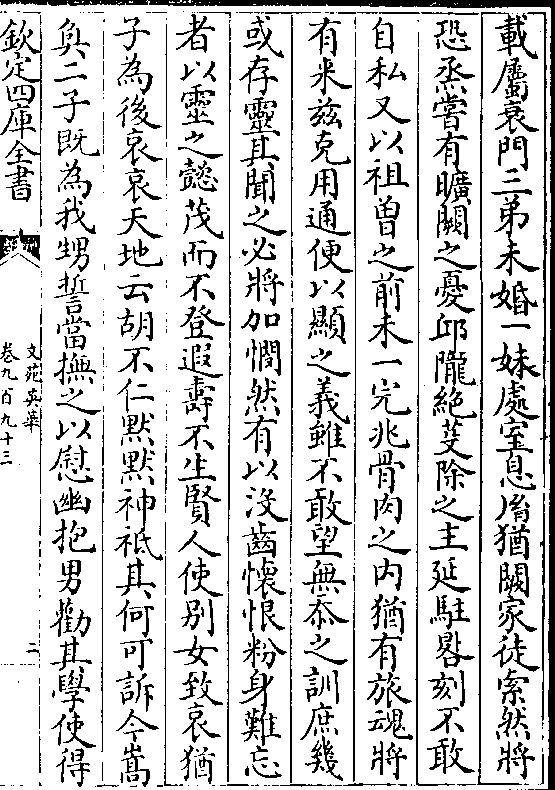 載屬衰門三弟未婚一妹處室息胤猶闕家徒索然將
恐烝嘗有曠闕之憂邱隴絶芟除之主延駐晷刻不敢
自私又以祖曽之前未一完兆骨肉之内猶有旅魂將
有米兹克用通便以顯之義雖不敢望無忝之訓庶幾
或存靈其聞之必將加憫然有以沒齒懷恨粉身難忘
者以靈之懿茂而不登遐壽不生賢人使别女致哀猶
子為後哀哀天地云胡不仁黙黙神祗其何可訴今嵩
奐二子既為我甥誓當撫之以慰幽抱男勸其學使得
欽定四庫全書
文苑英華
卷九百九十三
二